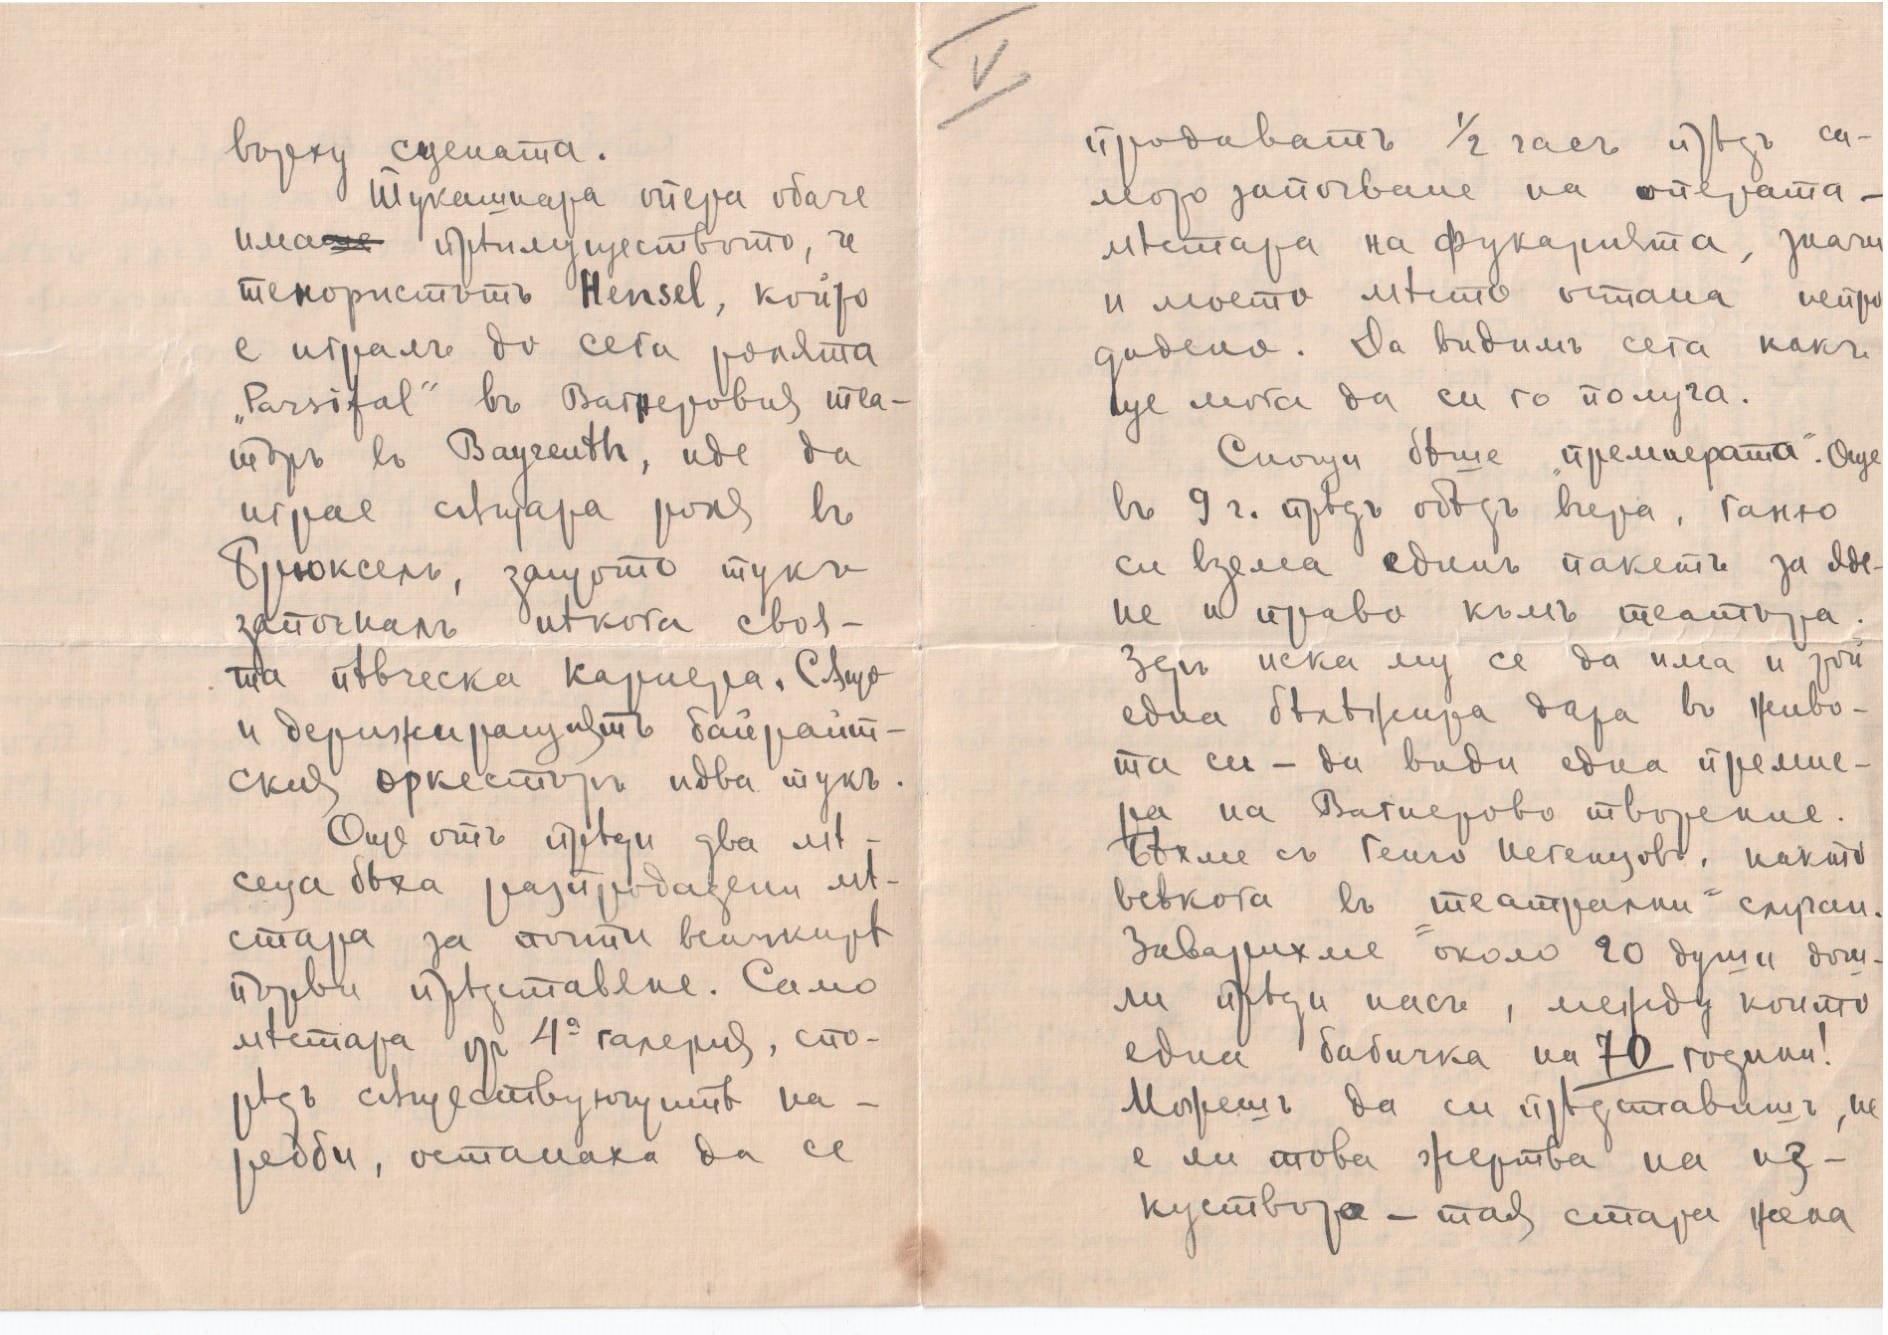 върху сцената.
Тукашната опера обаче
има прѣимуществото, че
тенористътъ Hensel, който
е игралъ до сега ролята
„Parsifal“ въ Вагнеровия теа-
търъ въ Bayreuth, иде да
играе сѫщата роля въ
Брюкселъ, защото тукъ
започналъ нѣкога своя-
та пѣвческа кариера. Сѫщо
и дерижиращиятъ байройт-
ския оркестъръ идва тукъ.
Още отъ прѣди два мѣ-
сеца бѣха разпродадени мѣ-
стата за почти всичкитѣ
първи прѣдставлене. Само
мѣстата отъ 4ª галерия, спо-
рѣдъ сѫществующитѣ на-
редби, останаха да се
V
продаватъ 1/2 часъ прѣдъ са-
мото започване на операта —
мѣстата на фукарията, значи
и моето мѣсто остана непро
дадено. Да видимъ сега какъ
ще мога да си го получа.
Снощи бѣше „премиерата“. Още
въ 9 ч. прѣдъ обѣдъ вчера, ганю
си взема единъ пакетъ за яде-
не и право къмъ театъра.
Зеръ иска му се да има и той
една бѣлѣжита дата въ живо-
та си — да види една премие-
ра на Вагнерово творение.
Бѣхме съ Генчо, както
всѣкога въ „театрални“ случаи.
Заварихме около 20 души дош-
ли прѣди насъ, между които
една бабичка на 70 години!
Можешъ да си прѣдставишъ, не
е ли това жертва на из-
куството — тая стара жена